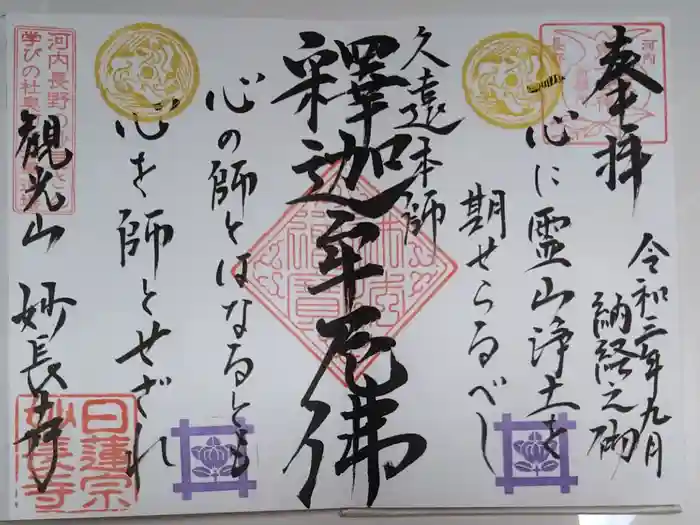 奉拝
令和三年九月
納経之砌
心に霊山浄土を
期せらるべし
久遠本師
釋迦牟尼佛
心の師とはなるとも
心を師とせざれ
観光山 妙長寺
河内長野の
学びの社
日蓮宗
妙長寺
河内